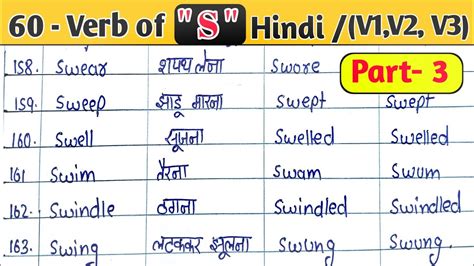 60 - Verb of "S" Hindi /(V1,V2, V3)
Part- 3
158. Swear शपथ लेना Swore
159. Sweep झाडू मारना Swept Swept
160. Swell सूजना Swelled Swelled
161 Swim तैरना Swam Swum
162. Swindle ठगना Swindled Swindled
163. Swing लटककर झूलना Swung Swung